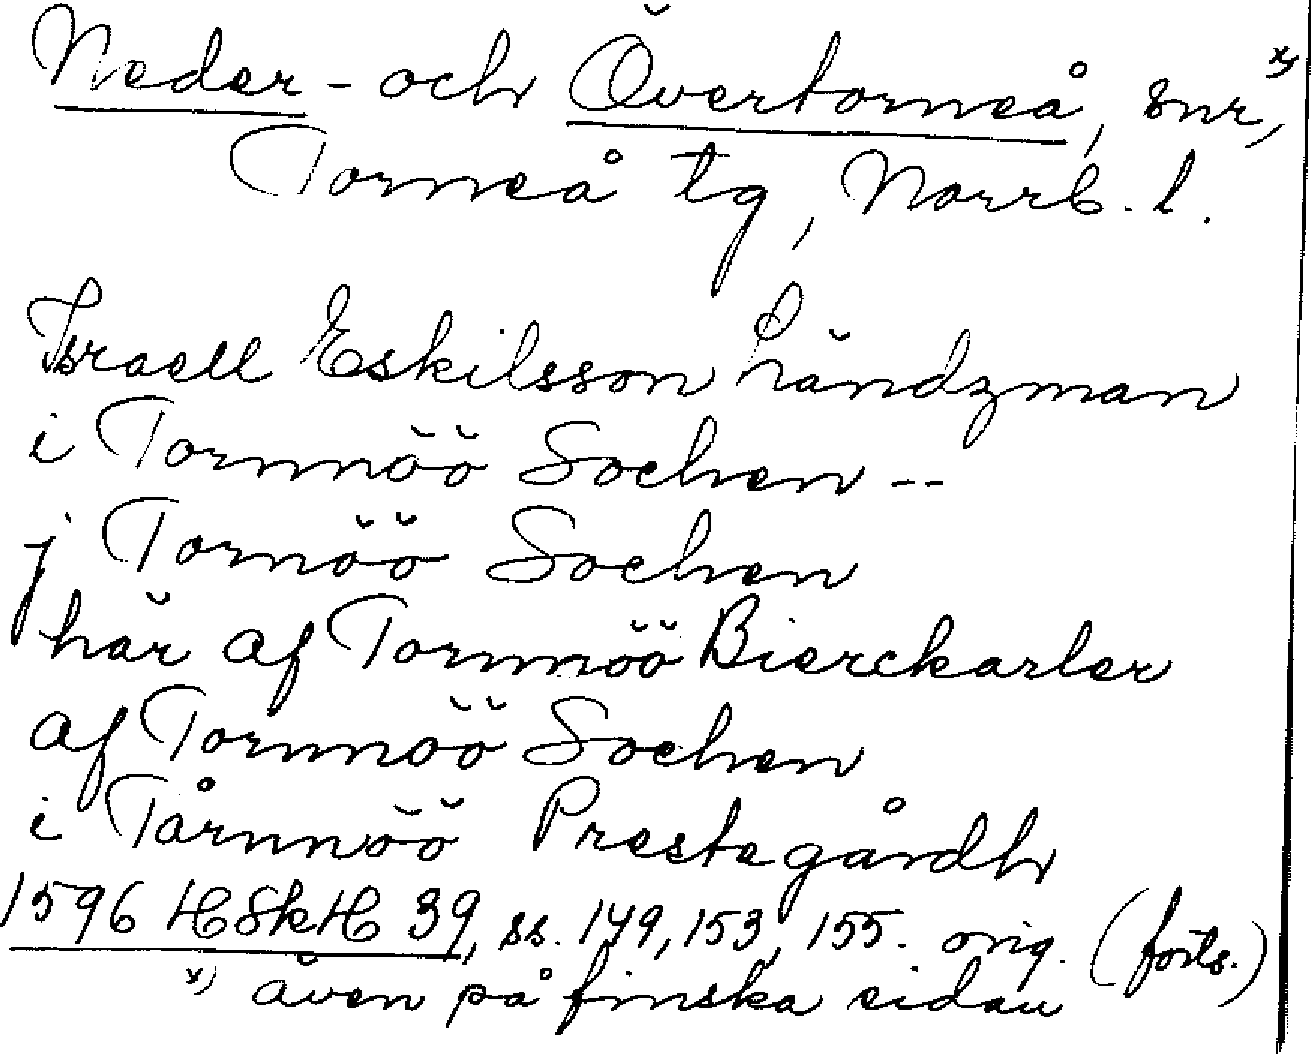 Neder- och Övertorneå, snr, x)
Torneå tg, Norrb. l.
Israell Eskilsson Ländzman
i Tornnöö Sochen --
j Tornöö Sochen
här af Tornnöö Bierckarler
af Tornnöö Sochen
i Tårnnöö Prestegårdh
1596 HSkH 39, ss. 149, 153, 155. orig. (forts.)
x) även på finska sidan